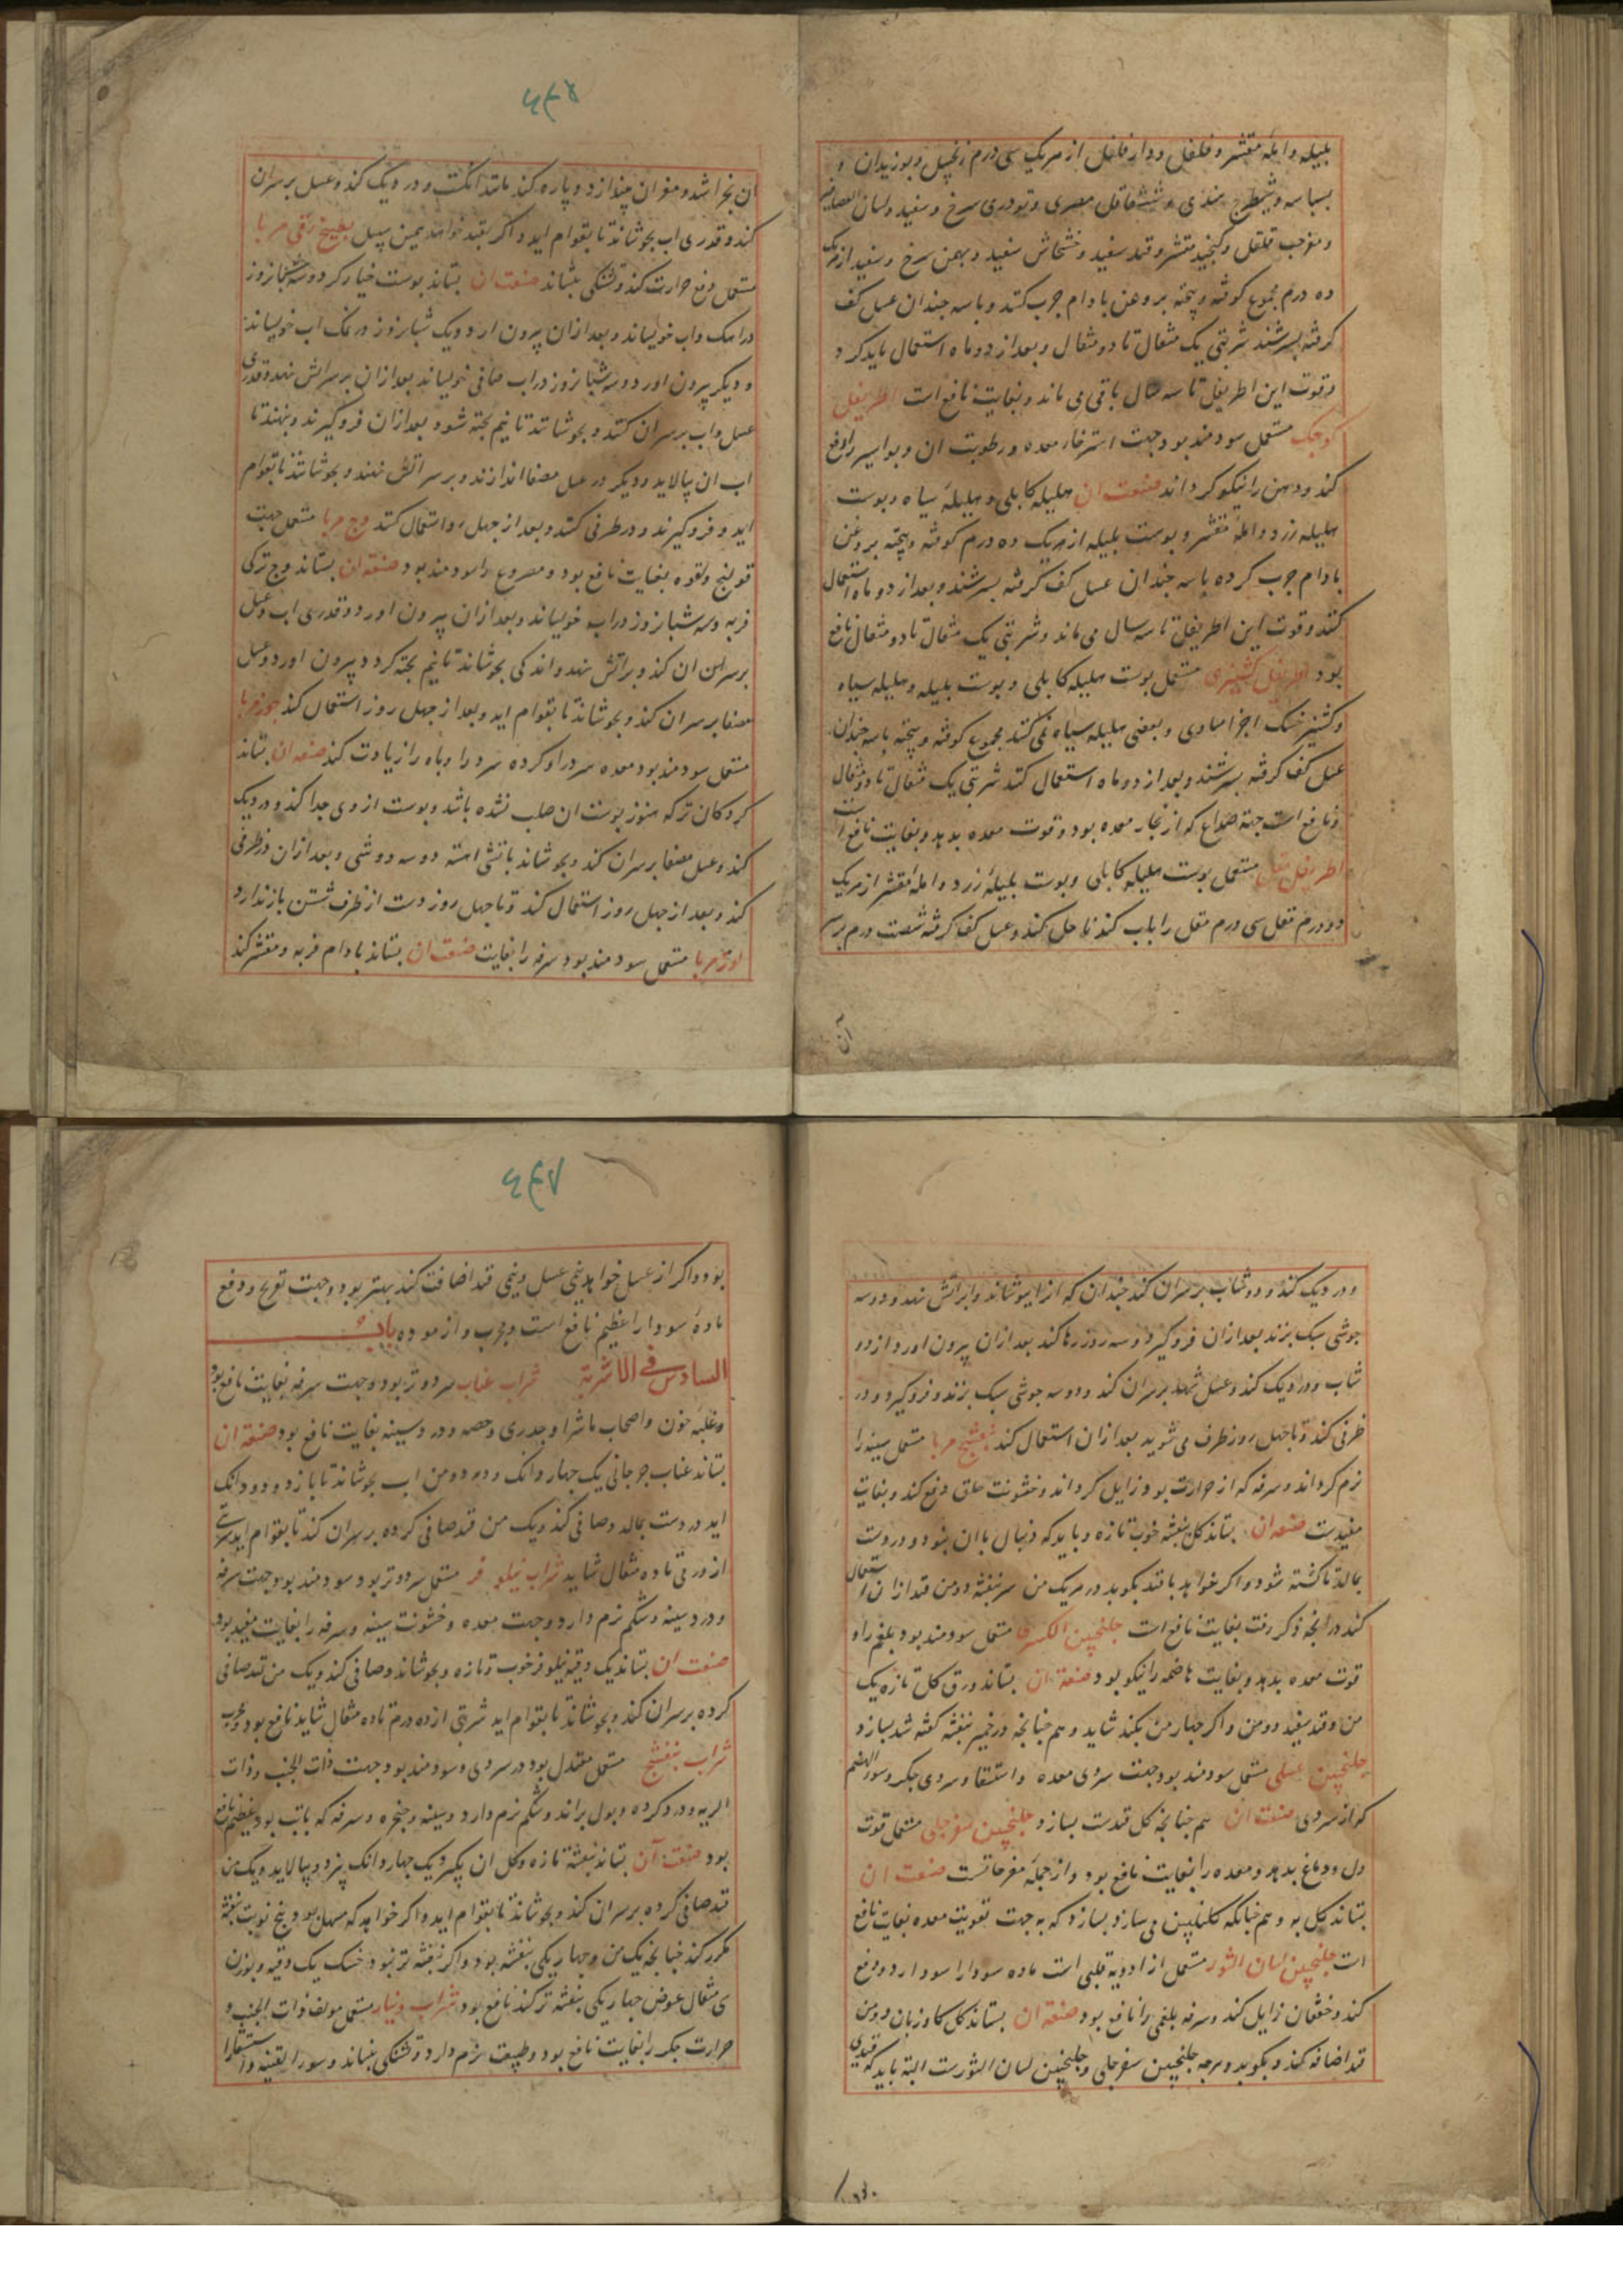 بلیله و امله مقشر و فلفل و دار فلفل از هریک سی درم زنجبیل و بوزیدان و
بسباسه و شیطرج هندی و شقاقل مصری و تودری سرخ و سفید و لسان العصافیر
و مغزحب قلقل و کنجید مقشر و قند سفید و خشخاش سفید و بهمن سرخ و سفید از هریک
ده درم مجموع کوفته و پخته بروغن بادام جرب کنند و با سه جندان عسل کف
کرفته بسرشند شربتی یک مثقال تا دو مثقال و بعد از دو ماه استعمال باید کرد
و قوت این اطریفل تا سه سال باقی می ماند و بغایت نافع است اطریفل
کوجک مستعمل سودمند بود جهت استرخاء معده و رطوبت ان و بواسیر را دفع
کند و ذهن را نیکو کرداند صنعت ان هلیله کابلی و هلیلۀ سیاه و پوست
هلیله زرد و املۀ مقشر و پوست بلیله از هریک ده درم کوفته و پخته بروغن
بادام جرب کرده با سه جندان عسل کف کرفته بسرشند و بعد از دو ماه استعمال
کنند و قوت این اطریفل تا سه سال می ماند و شربتی یک مثقال تا دو مثقال نافع
بود اطریفل کشنیزی مستعمل پوست هلیله کابلی و پوست بلیله و هلیله سیاه
و کشنیز خشک اجزا مساوی و بعضی هلیله سیاه نمی کنند مجموع کوفته و پخته با سه جندان
عسل کف کرفته بسرشند و بعد از دو ماه استعمال کنند شربتی یک مثقال تا دو مثقال
و نافع است جهة صداع که از بخار معده بود و قوت معده بدهد و بغایت نافع است
اطریفل مقل مستعمل پوست هلیله کابلی و پوست بلیلۀ زرد و املۀ مقشر از هریک
دو درم مقل سی درم مقل را باب کند تا حل کند و عسل کف کرفته شصت درم برسر
آن
ان بخراشد و مغز ان بیندازد و پاره کند مانند انکشت و در دیک کند و عسل برسر ان
کند و قدری اب بجوشاند تا بقوام اید و اکر بقند خواهند همین سبیل بطیخ رقی مربا
مستعمل دفع حرارت کند و تشنکی بنشاند صنعت ان بستاند پوست خیار کر دو سه شبانروز
در اهک و اب خویساند و بعد از ان بیرون ارد و یک شبانروز در نمک اب خویساند
و دیکر بیرون اورد و سه شبانروز در اب صافی خویساند بعد از ان برسر اتش نهد و قدری
عسل و اب برسر ان کنند و بجوشانند تا نیم پخته شود بعد از ان فرو کیرند و بنهند تا
اب ان بپالاید و دیکر در عسل مصفا اندازند و برسر اتش نهند و بجوشانند تا بقوام
اید و فرو کیرند و در ظرفی کنند و بعد از جهل روز استعمال کنند وج مربا مستعمل جهت
قولنج و لقوه بغایت نافع بود و مصروع را سودمند بود صنعة ان بستاند وج ترکی
فربه و سه شبانروز در اب خویساند و بعد از ان بیرون اورد و قدری اب و عسل
برسر ان کند و براتش نهد و اندکی بجوشاند تا نیم پخته کردد و بیرون اورد و عسل
مصفا برسر ان کند و بجوشاند تا بقوام اید و بعد از جهل روز استعمال کند جوز مربا
مستعمل سودمند بود معده سرد را و کرده سرد را و باه را زیادت کند صنعة ان بستاند
کردکان تر که هنوز پوست ان صلب نشده باشد و پوست از وی جدا کند و در دیک
کند و عسل مصفا برسر ان کند و بجوشاند باتش اهسته دو سه جوشی و بعد از ان در ظرفی
کند و بعد از جهل روز استعمال کند و تا جهل روز دست از ظرف شستن باز ندارد
لوز مربا مستعمل سودمند بود سرفه را بغایت صنعت ان بستاند بادام فربه و مقشر کند
و در دیک کند و دوشاب برسر ان کند جندان که از ان بپوشاند و براتش نهد و دو سه
جوشی سبک بزند بعد از ان فرو کیرد و سه روز رها کند بعد از ان بیرون اورد از دو
شاب و در دیک کند و عسل شهد برسر ان کند و دو سه جوشی سبک بزند و فرو کیرد و در
ظرفی کند و تا جهل روز ظرف می شوید بعد از ان استعمال کند بنفشج مربا مستعمل سینه را
نرم کرداند و سرفه که از حرارت بود زایل کرداند و خشونت حلق دفع کند و بغایت
مفیدست صنعة ان بستاند کل بنفشه خوب تازه و باید که دنبال با ان نبود و در دست
بمالد تا کشته شود و اکر خواهد با قند بکوبد در هریک من سر بنفشه دو من قند از ان استعمال
کند در انجه ذکر رفت بغایت نافع است جلنجبین السکری مستعمل سودمند بود بلغم را و
قوت معده بدهد و بغایت هاضمه را نیکو بود صنعة ان بستاند ورق کل تازه یک
من و قند سفید دو من و اکر جهار من بکند شاید و هم جنانجه در خمیر بنفشه کفته شد بسازد
جلنجبین عسلی مستعمل سودمند بود جهت سردی معده و استسقا و سردی جکر و سوء الهضم
که از سردی صنعت ان هم جنانجه کل قندست بسازد جلنجبین سفرجلی مستعمل قوت
دل و دماغ بدهد و معده را بغایت نافع بود و از جمله مفرحاتست صنعت ان
بستاند کل به و هم جنانکه کلنکبین می سازد بسازد که به جهت تقویت معده بغایت نافع
است جلنجبین لسان الثور مستعمل از ادویه قلبی است ماده سودا را سود دارد و دفع
کند و خفقان زایل کند و سرفه بلغمی را نافع بود صنعة ان بستاند کل کاوزبان و دو من
قند اضافه کند و بکوبد و هرجه جلنجبین سفرجلی و جلنجبین لسان الثورست البته باید که قندی
بود و اکر از عسل خواهد نیمی عسل و نیمی قند اضافت کند بهتر بود و جهت تفریح و دفع
مادۀ سودا را عظیم نافع است و مجرب و ازموده باب
السادس فی الاشربة شراب عناب سرد و تر بود و جهت سرفه بغایت نافع بود
و غلبۀ خون و اصحاب ماشرا و جدری و حصبه و درد سینه بغایت نافع بود صنعة ان
بستاند عناب جرجانی یک جهار دانک و در دو من اب بجوشاند تا باز دو دانک
اید در دست بمالد و صافی کند و یک من قند صافی کرده برسر ان کند تا بقوام اید شربت
از درمی تا ده مثقال شاید شراب نیلوفر مستعمل سرد و تر بود و سودمند بود جهت سرفه
و درد سینه و شکم نرم دارد و جهت معده و خشونت سینه و سرفه را بغایت مفید بود
صنعت ان بستاند یک وقیه نیلوفر خوب و تازه و بجوشاند و صافی کند و یک من قند صافی
کرده برسر ان کند و بجوشاند تا بقوام اید شربتی از ده درم تا ده مثقال شاید نافع بود و مجرب
شراب بنفشج مستعمل معتدل بود در سردی و سودمند بود جهت ذات الجنب و ذات
الریه و درد کرده و بول براند و شکم نرم دارد و سینه و حنجره و سرفه که با تب بود عظیم نافع
بود صنعت آن بستاند بنفشۀ تازه و کل ان بکیرد یک جهار دانک بپزد و بپالاید و یک من
قند صافی کرده برسر ان کند و بجوشاند تا بقوام اید و اکر خواهد که مسهل بود پنج نوبت بنفشه
مکرر کند جنانجه یک من و جهار یکی بنفشه بود و اکر بنفشه تر نبود خشک یک وقیه و بوزن
سی مثقال عوض جهار یکی بنفشه تر کند نافع بود شراب دینار مستعمل مولف ذات الجنب و
حرارت جکر را بغایت نافع بود و طبیعت نرم دارد و تشنکی بنشاند و سوء القنیه و استسقا را